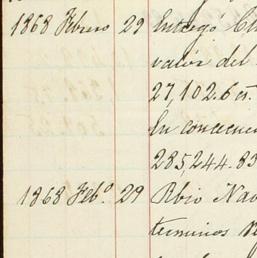 1868 Febrero 29 Entregó
valor del
27,102.6 ct.
En concecuen
285,244.83
1868 Feb.º 29 Rbió Nav
terminos